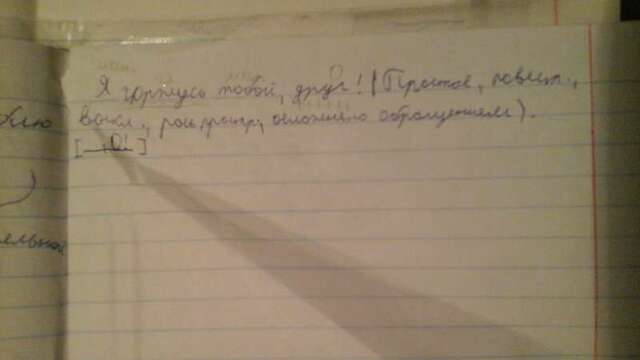 Я горжусь тобой, друг! (Простое, повест.,
воскл., распростр., осложнено обращением).
[ О! ]